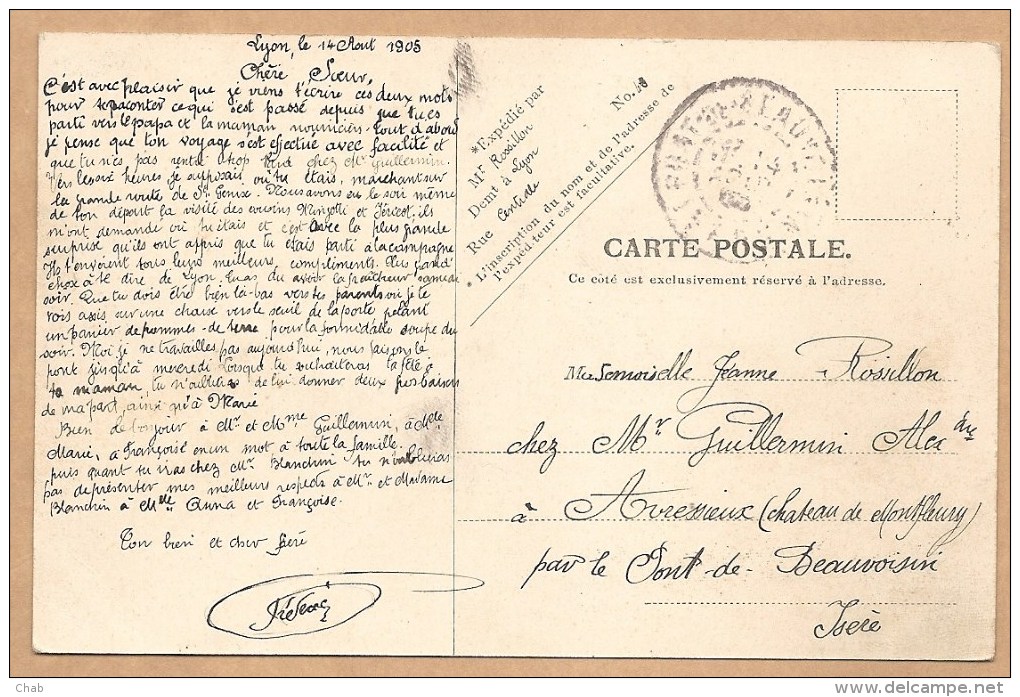 Lyon, le 14 Aout 1905
Chère Sœur,
C'est avec plaisir que je viens t'écrire ces deux mots
pour te raconter ce qui s'est passé depuis que tu es
parti vers le papa et la maman nourriciers. Tout d'abord
je pense que ton voyage s'est effectué avec facilité et
que tu n'es pas rentré trop tard chez Mr Guillermin.
Vers les six heures je supposais où tu étais, marchant sur
la grande route de St Genix. Nous avons eu le soir même
de ton départ la visite des cousins Mingotti et ils
m'ont demandé où tu étais et c'est avec la plus grande
surprise qu'ils ont appris que tu étais parti à la campagne
Ils t'envoient tous leurs meilleurs compliments. Plus grand
chose à te dire de Lyon, la fraîcheur samedi
soir. Que tu dois être bien là-bas vers tes parents où je te
vois assis sur une chaise vers le seuil de la porte pelant
un panier de pommes-de-terre pour la formidable soupe du
soir. Moi je ne travailles pas aujourd'hui, nous faisons le
pont jusqu'à mercredi. Lorsque tu souhaiteras la fête à
ta maman, tu n'oublieras de lui donner deux gros baisers
de ma part, ainsi qu'à Marie
Bien de bonjour à Mr et Mme Guillermin, à Melle
Marie, à Françoise en un mot à toute la famille.
puis quant tu iras chez Mr Blanchin tu n'oublieras
pas de présenter mes meilleurs respects à Mr et Madame
Blanchin à Melle Anna et Françoise.
Ton bien et cher frère
*Expédié par
Mr Rossillon
Demt à Lyon
Rue Centrale
No. 28
* L'inscription du nom et de l'adresse de
l'expéd-teur est facultative.
CARTE POSTALE.
Ce côté est exclusivement réservé à l'adresse.
Mademoiselle Jeanne Rossillon
chez Mr Guillermin
à Avressieux (chateau de Montfleury)
par le Pont-de-Beauvoisin
Isère
Chab
www.delcampe.net